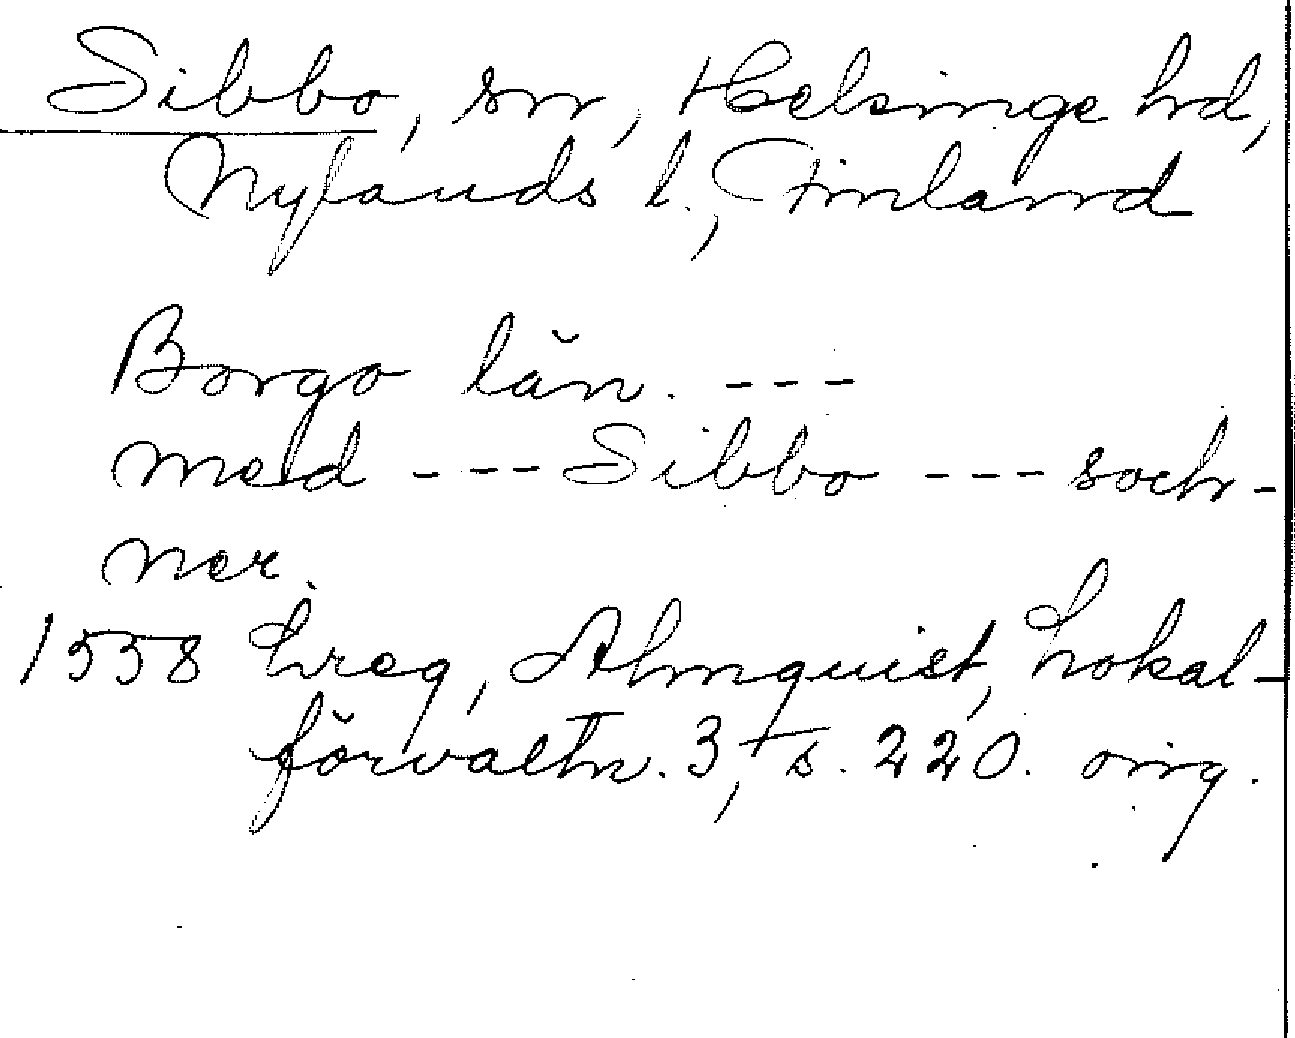 Sibbo, sn, Helsinge hd,
Nylands l., Finland
Borgo län. ---
med --- Sibbo --- soch-
ner.
1558 Lreg, Almquist, Lokal-
förvaltn. 3, s. 220. orig.